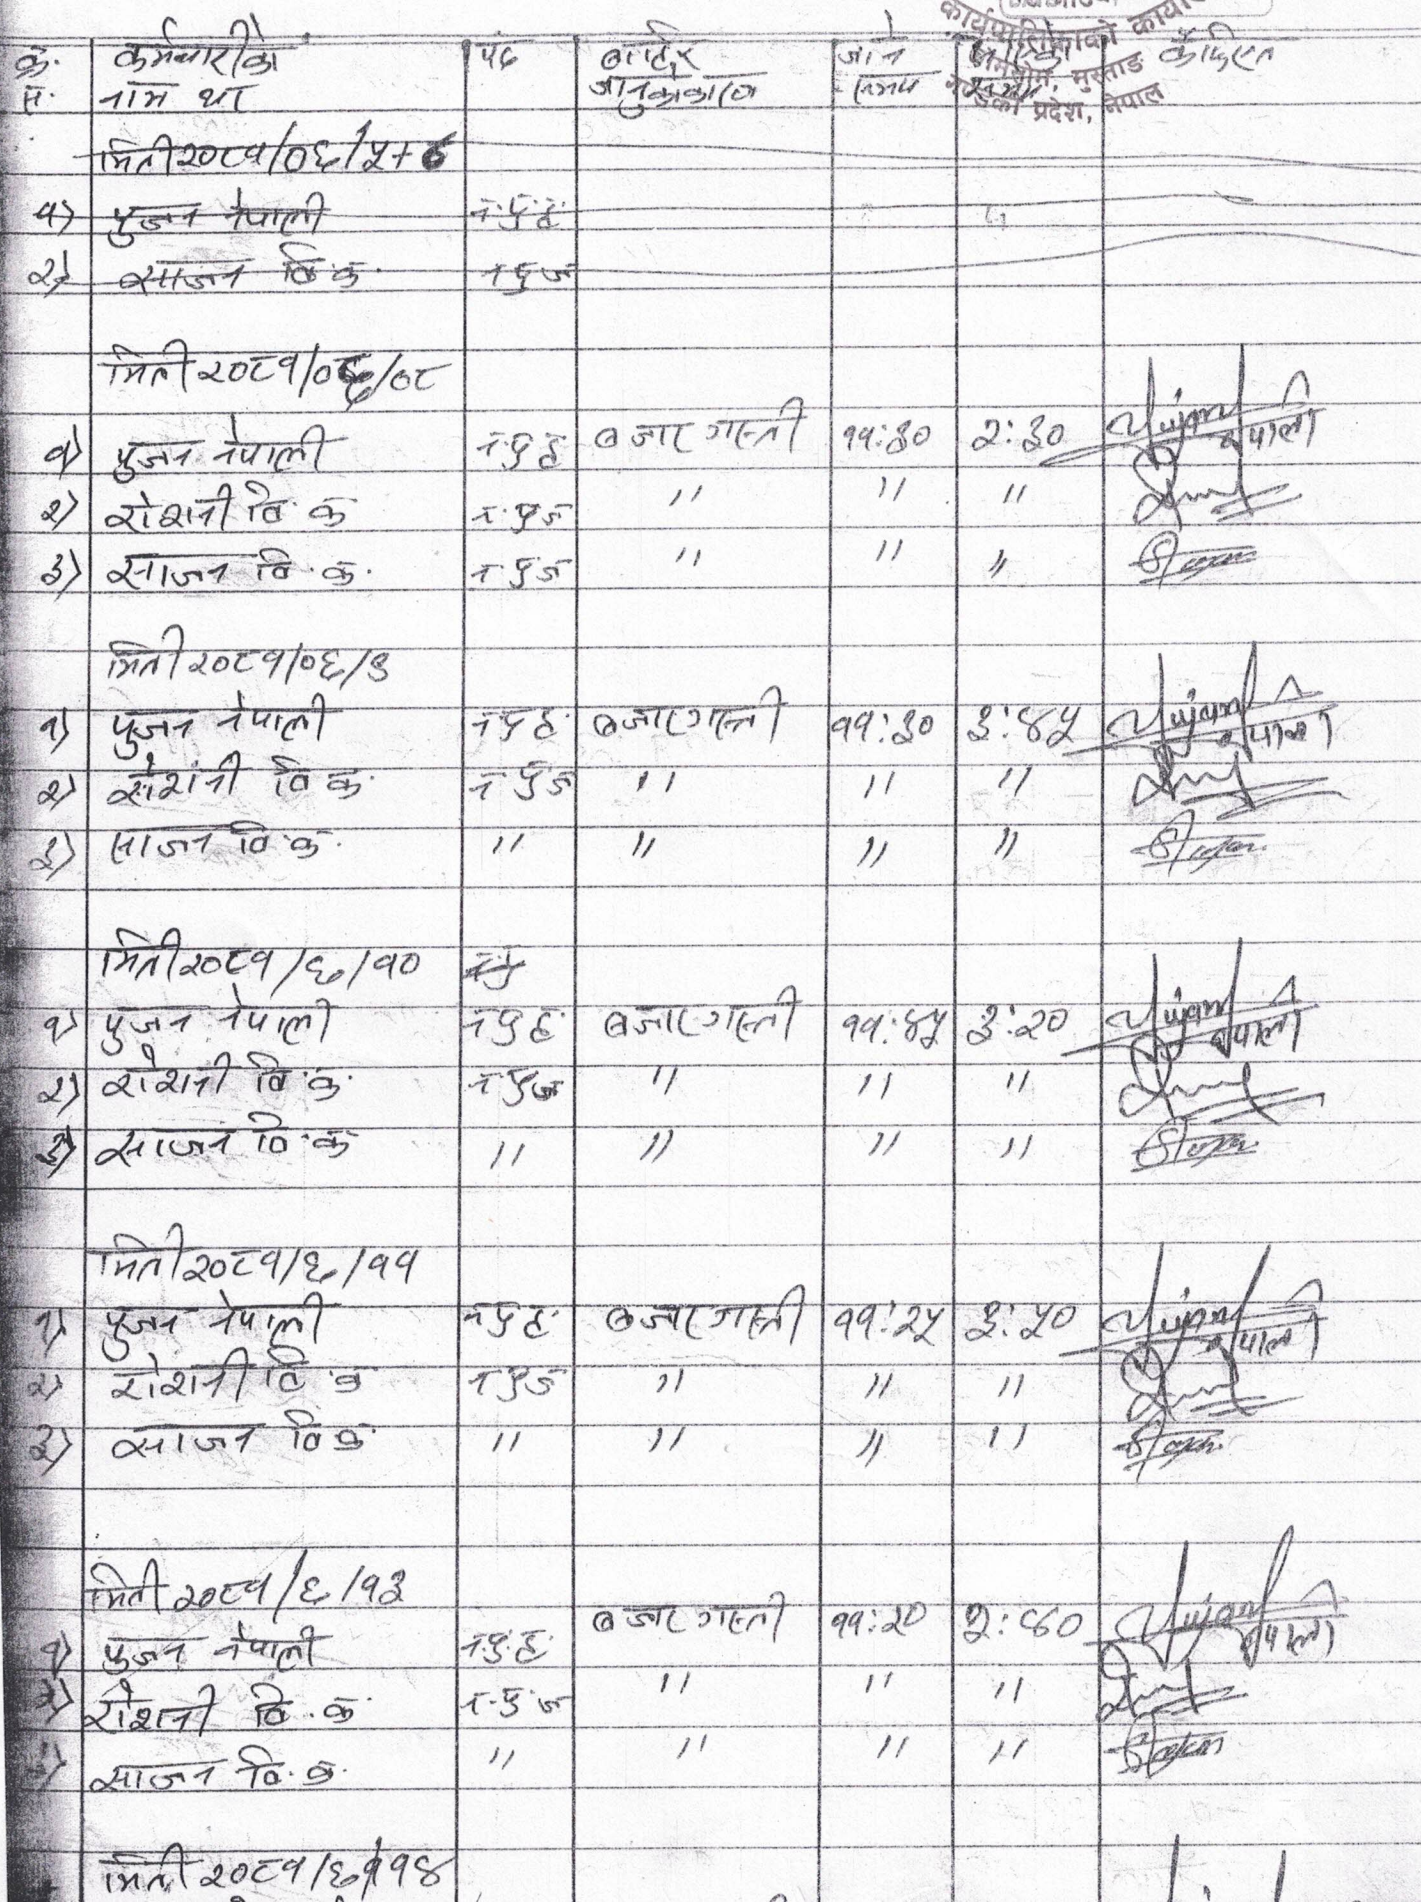 कार्यपालिकाको कार्या
जोमसोम, मुस्ताङ
गण्डकी प्रदेश, नेपाल
क्र. कर्मचारीको पद बाहिर जाने कैफियत
स. नाम थर जानुको कारण समय
मिती २०८१/०६/५+६
१) पुजन नेपाली न.पु.ह.
२) साजन वि.क. न पु ज
मिती २०८१/०६/०८
१) पुजन नेपाली न पु ह बजार गस्ती ११:३० २:३० Pujan नेपाली
२) रोशनी वि.क न.पु ज " " "
३) साजन वि.क. न पु ज " " "
मिती २०८१/०६/९
१) पुजन नेपाली न पु ह. बजार गस्ती ११:३० ३:४५ Pujan नेपाली
२) रोशनी वि क. न पु ज " " "
३) साजन वि.क. " " " "
मिती २०८१/६/१०
१) पुजन नेपाली न पु ह. बजार गस्ती ११:४५ ३:२० Pujan नेपाली
२) रोशनी वि.क. न पु ज " " "
३) साजन वि.क " " " "
मिती २०८१/६/११
१) पुजन नेपाली न पु ह. बजार गस्ती ११:२५ ३:५० Pujan नेपाली
२) रोशनी वि.क न पु ज " " "
३) साजन वि क " " " "
मिती २०८१/६/१३
१) पुजन नेपाली न.पु.ह. बजार गस्ती ११:२० २:४० Pujan नेपाली
२) रोशनी वि.क न.पु ज " " "
३) साजन वि.क. " " " "
मिती २०८१/६/१४